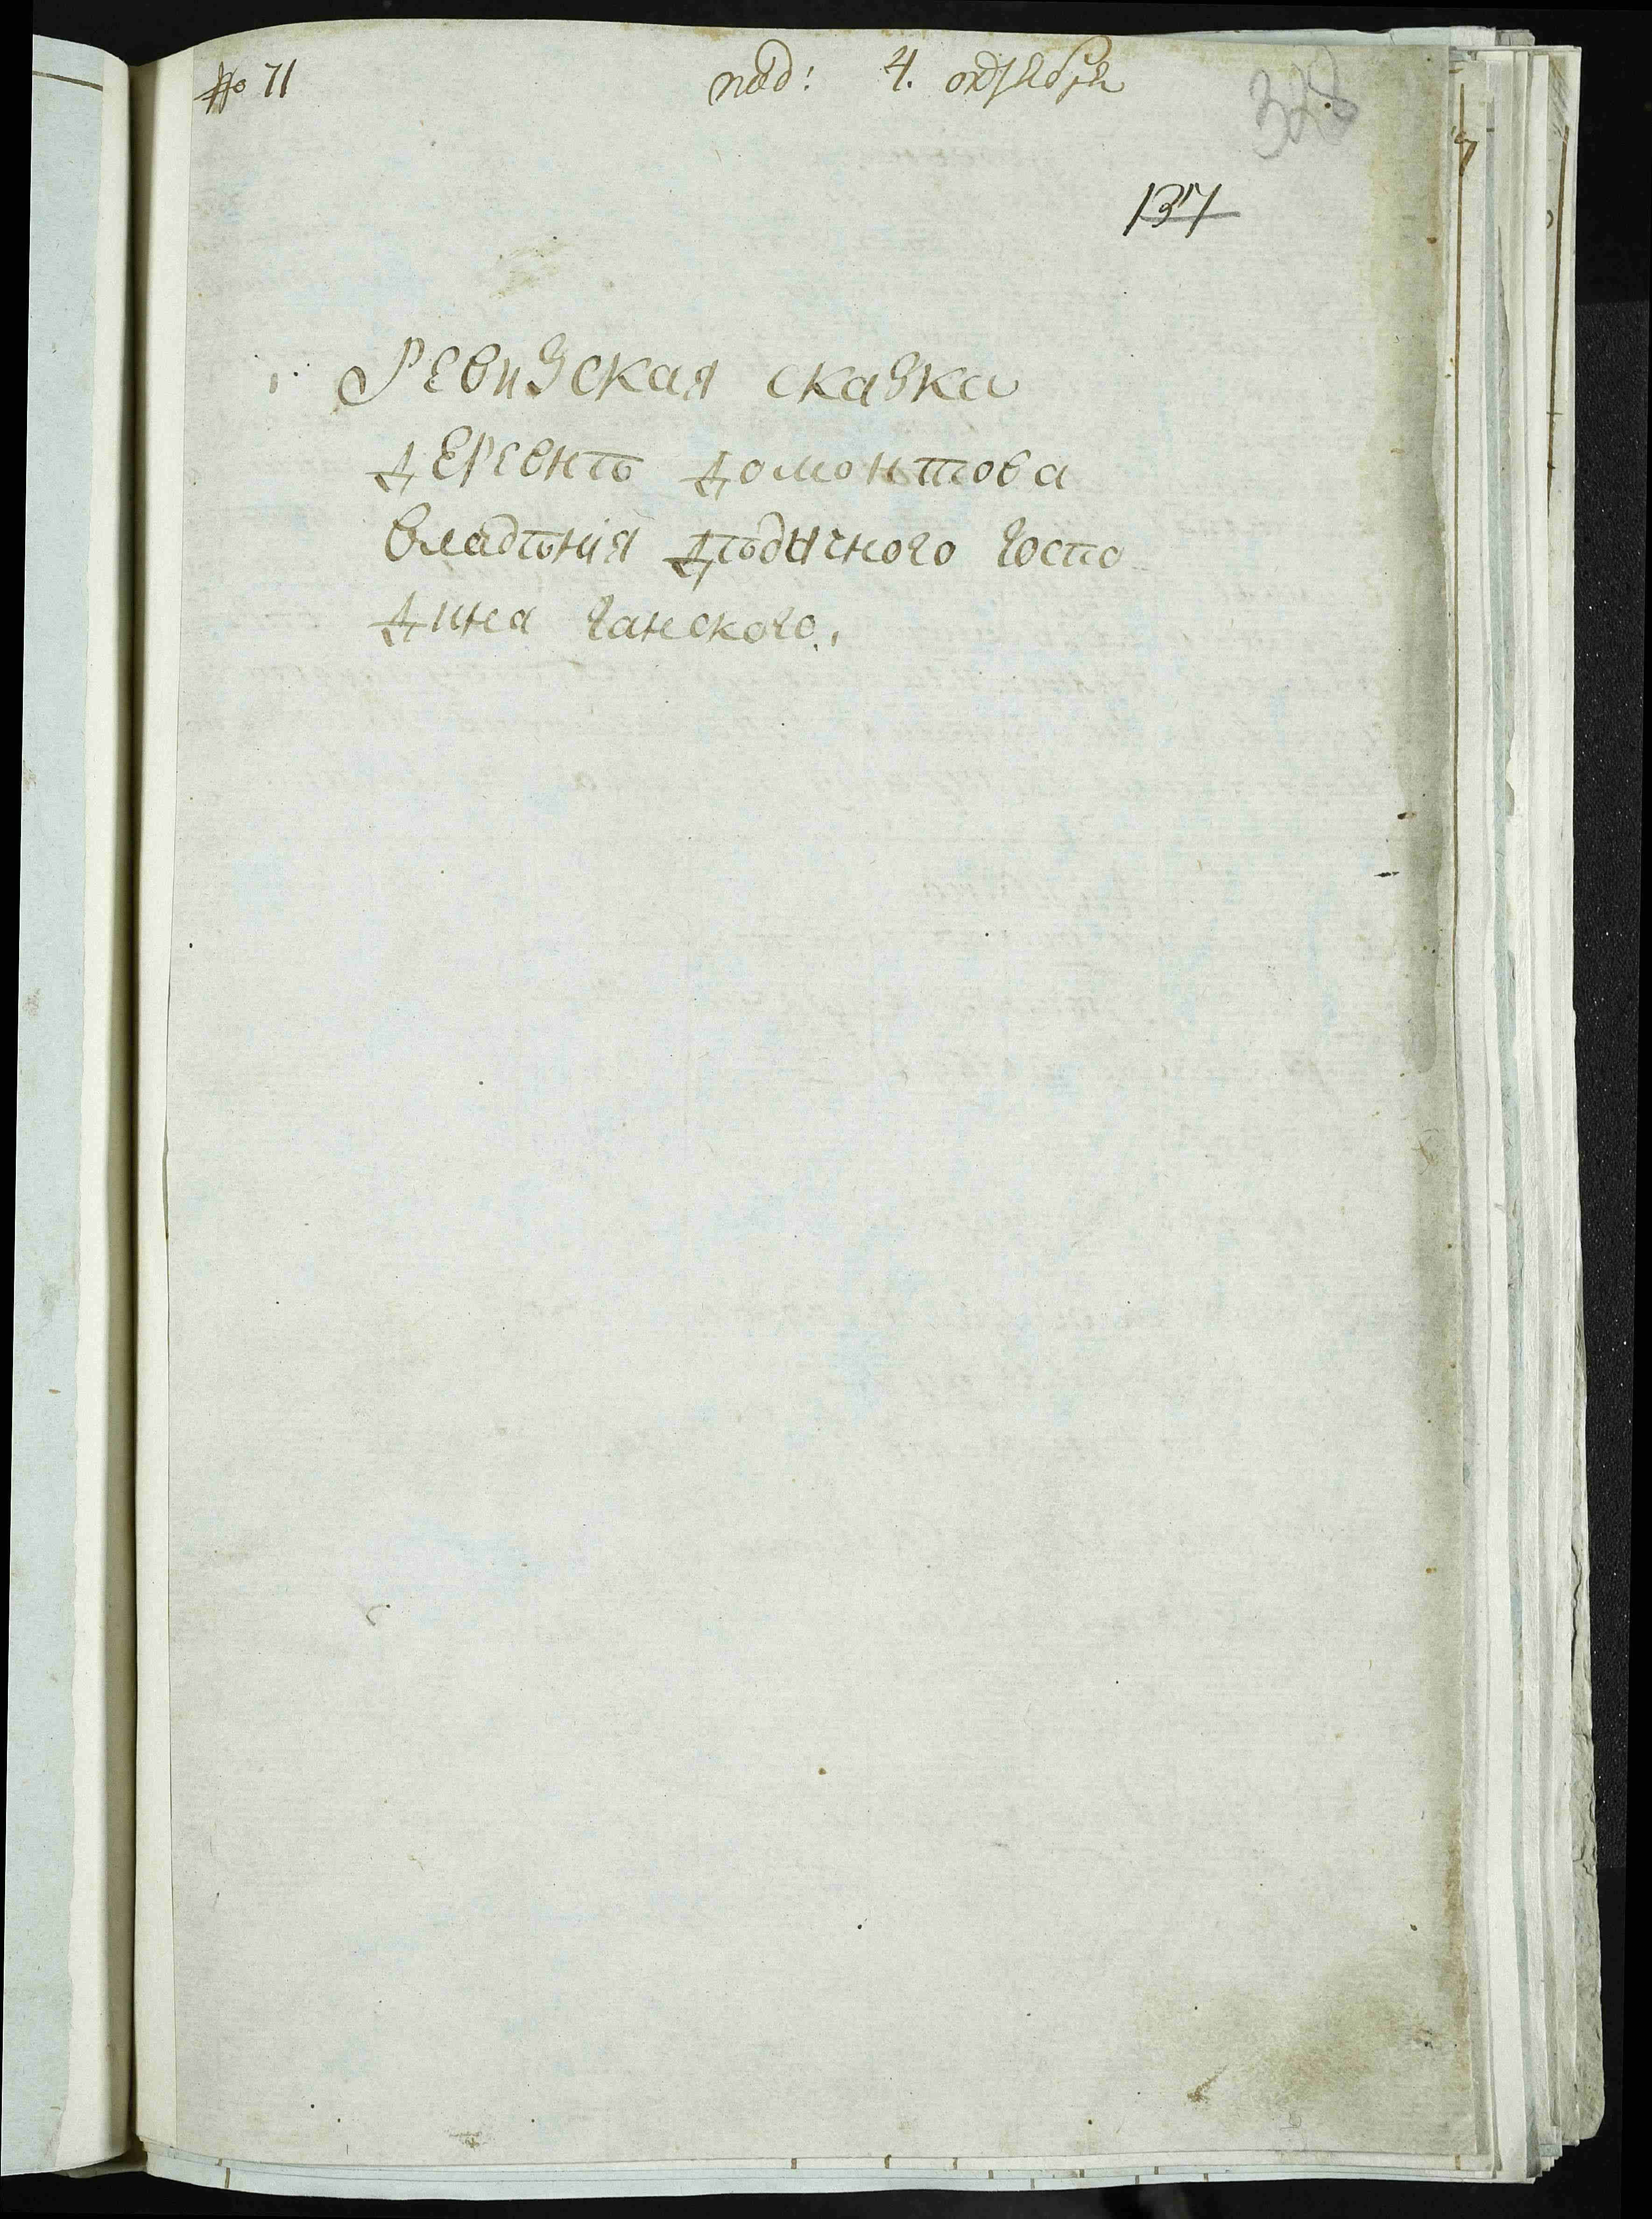 № 71 под: 4. октября 328
137
Ревизская сказка
деревнѣ домонтова
владѣния дѣдичного госпо
дина ганского.